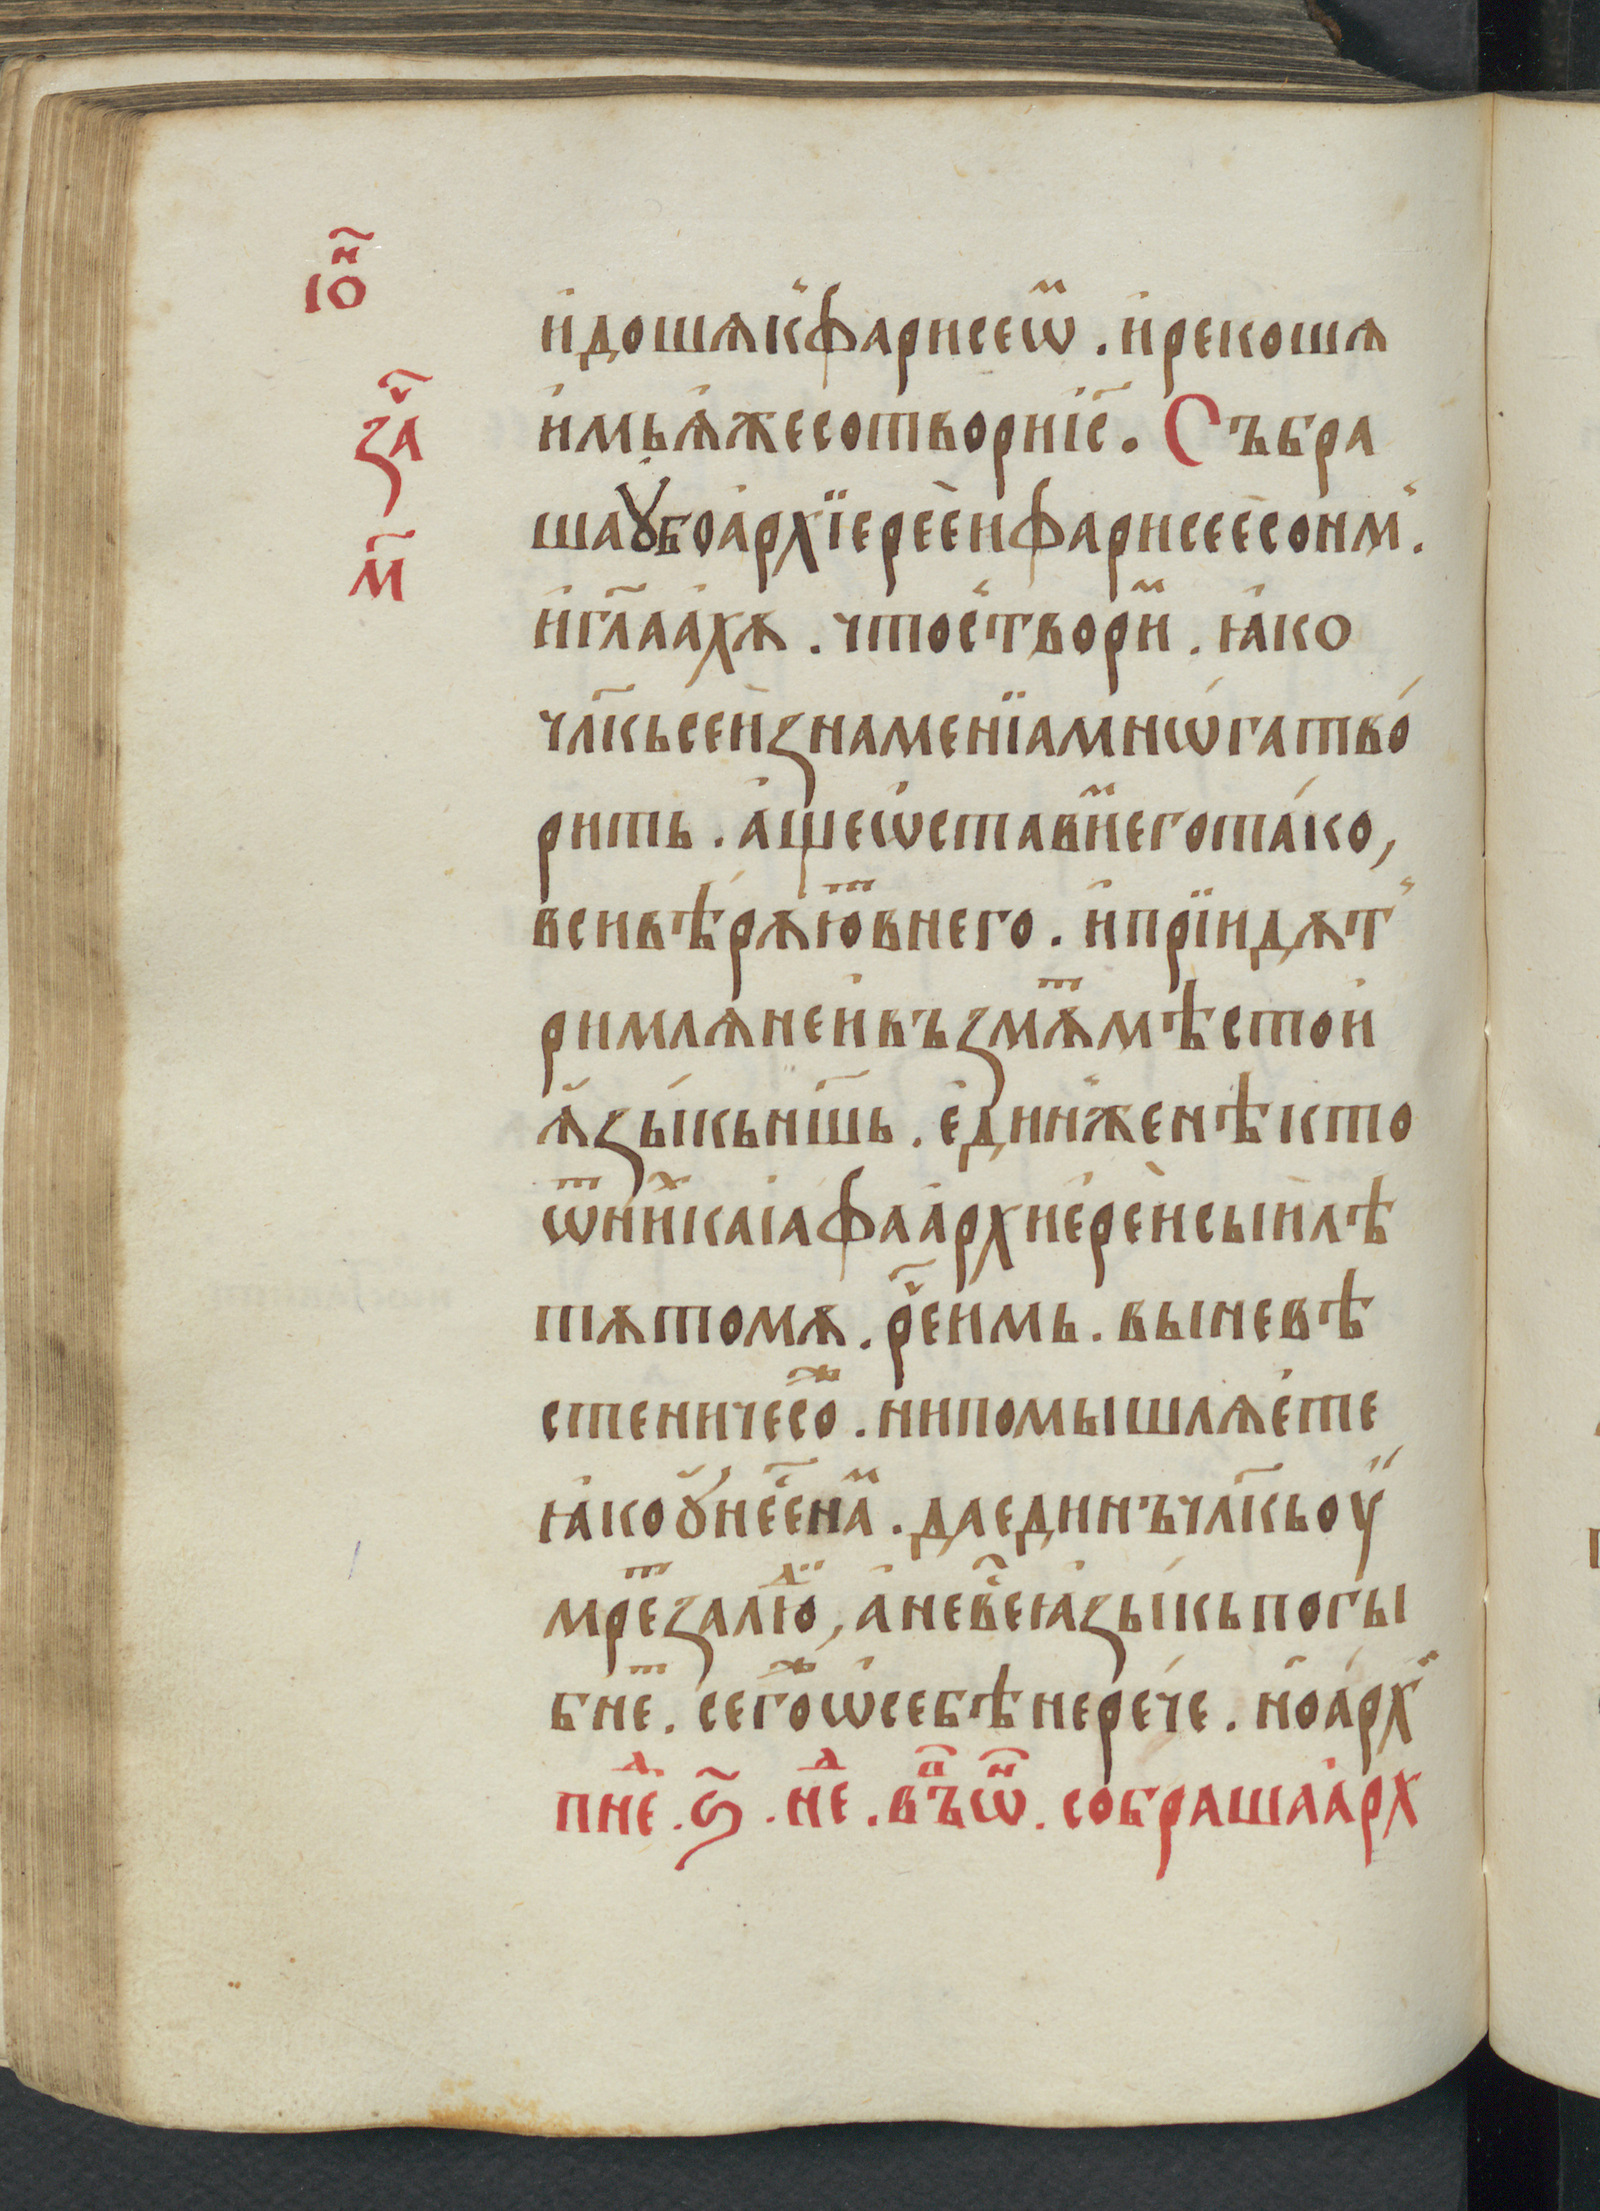 іѡ҃н
за҃ч
м҃
идошѧк̾фарисеѡⷨ . ирекошѧ
имьꙗ҆жесотвориіс҃ . Събра
шаꙋбоархїереѐифарисеѐсонм̾ .
игл҃аахѫ . чтос̾творⷨи . ꙗко
чл҃кьсеи̏знаменїамнѡ́гатво́
рить . а҆щеѡ҆ставⷨиегота́ко ,
всивѣ́рѫюⷮвнего . ипрїидѫт̾
римлѧнеивъзмѫⷮмѣстои
ѧ҆зы́кьнш҃ь . е҆дин̾женѣкто
ѿниⷯкаіафаархие҆ре̏исыи̏лѣ
тѫтомѫ . рⷱ҇еимь . выневѣ
стеничесоⷤ . нипомышлѧе́те
ꙗкоꙋнее҃наⷨ . даединъчл҃кьоу̏
мреⷮзалюⷣ , аневеⷭ҇ꙗ҆зы́кьпогы
бнеⷮ . сегоⷤѡ҆себѣнере́че . ноа́рх̾
пнеⷣ . ѕ҃ . неⷣ . впⷫ҇ъѡⷩ҇ . собрашаа́рх